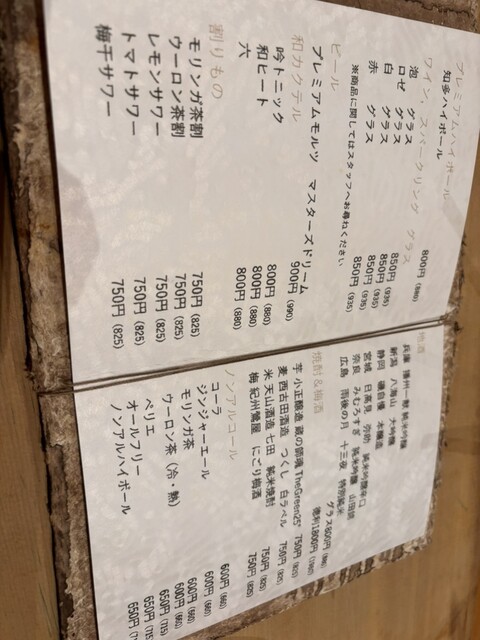 プレミアムハイボール
知多ハイボール 800円 (880)
ワイン、スパークリング グラス
泡 グラス 850円 (935)
ロゼ グラス 850円 (935)
白 グラス 850円 (935)
赤 グラス 850円 (935)
※商品に関してはスタッフへお尋ねください
ビール
プレミアムモルツ マスターズドリーム 900円 (990)
和カクテル
吟トニック 800円 (880)
和ヒート 800円 (880)
六 800円 (880)
割りもの
モリンガ茶割 750円 (825)
ウーロン茶割 750円 (825)
レモンサワー 750円 (825)
トマトサワー 750円 (825)
梅干サワー 750円 (825)
地酒
兵庫 播州一献 純米吟醸
新潟 八海山 大吟醸
静岡 磯自慢 本醸造
宮城 日高見 弥助 純米吟醸辛口
奈良 みむろすぎ 純米吟醸 山田錦
広島 雨後の月 十三夜 特別純米
グラス800円 (880)
徳利1800円 (1980)
焼酎&梅酒
芋 小正醸造 蔵の師魂 The Green25° 750円 (825)
麦 西吉田酒造 つくし 白ラベル 750円 (825)
米 天山酒造 七田 純米焼酎 750円 (825)
梅 紀州鶯屋 にごり梅酒 750円 (825)
ノンアルコール
コーラ 600円 (660)
ジンジャーエール 600円 (660)
モリンガ茶 600円 (660)
ウーロン茶 (冷・熱) 600円 (660)
ペリエ 650円 (715)
オールフリー 650円 (715)
ノンアルハイボール 650円